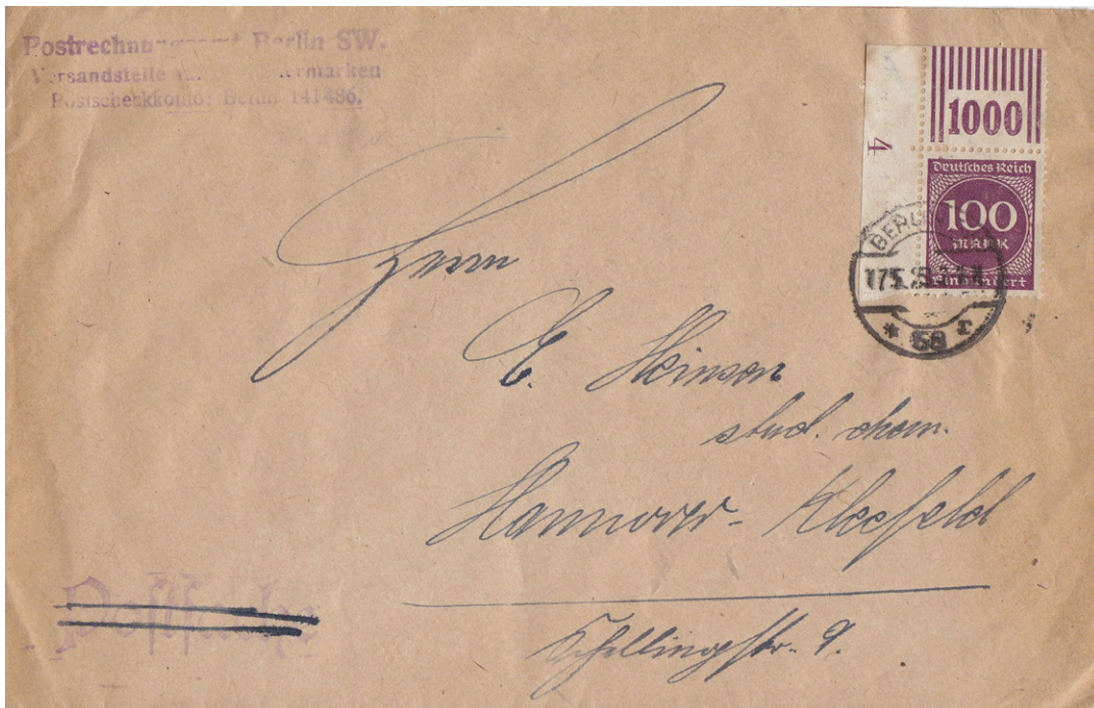 Postrechnungsamt Berlin SW.
Versandstelle
Postscheckkonto: Berlin 141486.
1000
4
Deutsches Reich
100
MARK
Einhundert
BERLIN
17.5.23.
* 58 r
Herrn
E. Heinson
stud. chem.
Hannover-Kleefeld
Schellingstr. 9.
Postsache